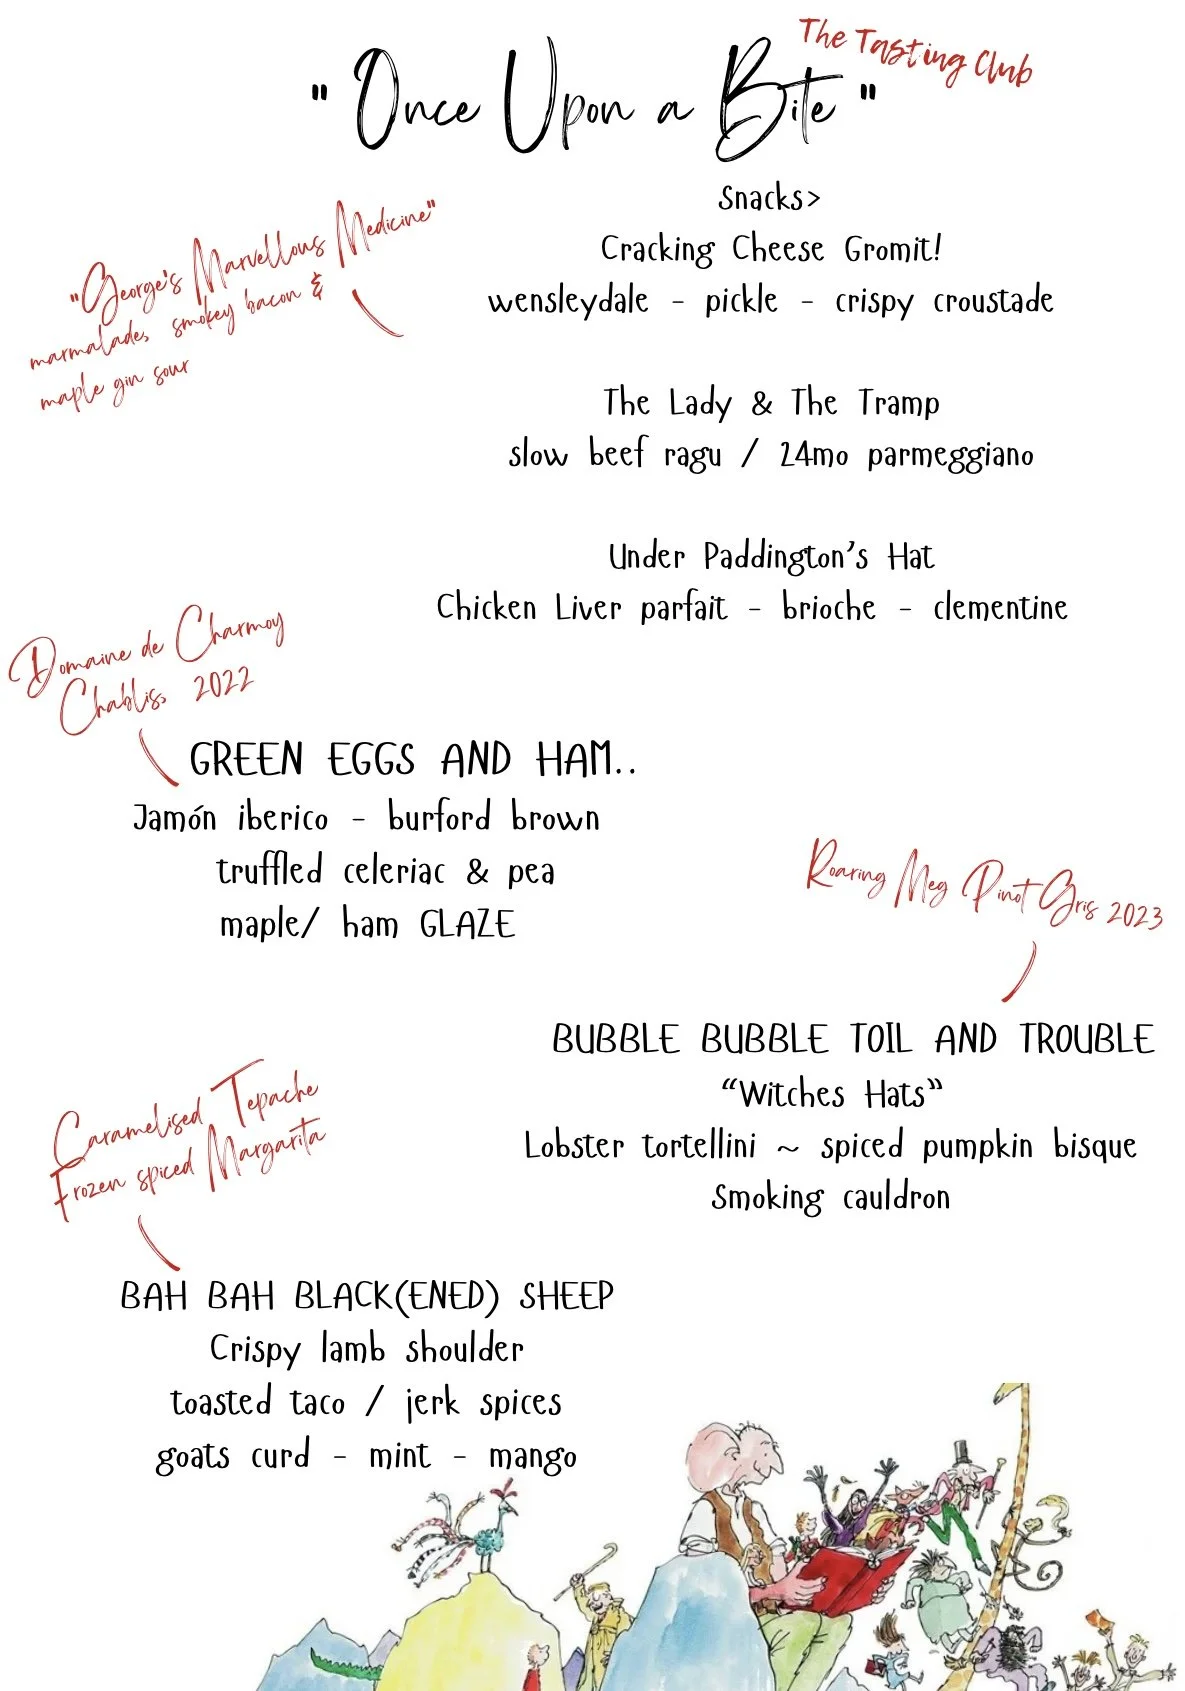 The Tasting Club
" Once Upon a Bite "
Snacks>
Cracking Cheese Gromit!
wensleydale - pickle - crispy croustade
"George's Marvellous Medicine"
marmalade, smokey bacon &
maple gin sour
The Lady & The Tramp
slow beef ragu / 24mo parmeggiano
Under Paddington's Hat
Chicken Liver parfait - brioche - clementine
Domaine de Charmoy
Chablis, 2022
GREEN EGGS AND HAM..
Jamón iberico - burford brown
truffled celeriac & pea
maple/ ham GLAZE
Roaring Meg Pinot Gris 2023
BUBBLE BUBBLE TOIL AND TROUBLE
“Witches Hats”
Lobster tortellini ~ spiced pumpkin bisque
Smoking cauldron
Caramelised Tepache
Frozen spiced Margarita
BAH BAH BLACK(ENED) SHEEP
Crispy lamb shoulder
toasted taco / jerk spices
goats curd - mint - mango